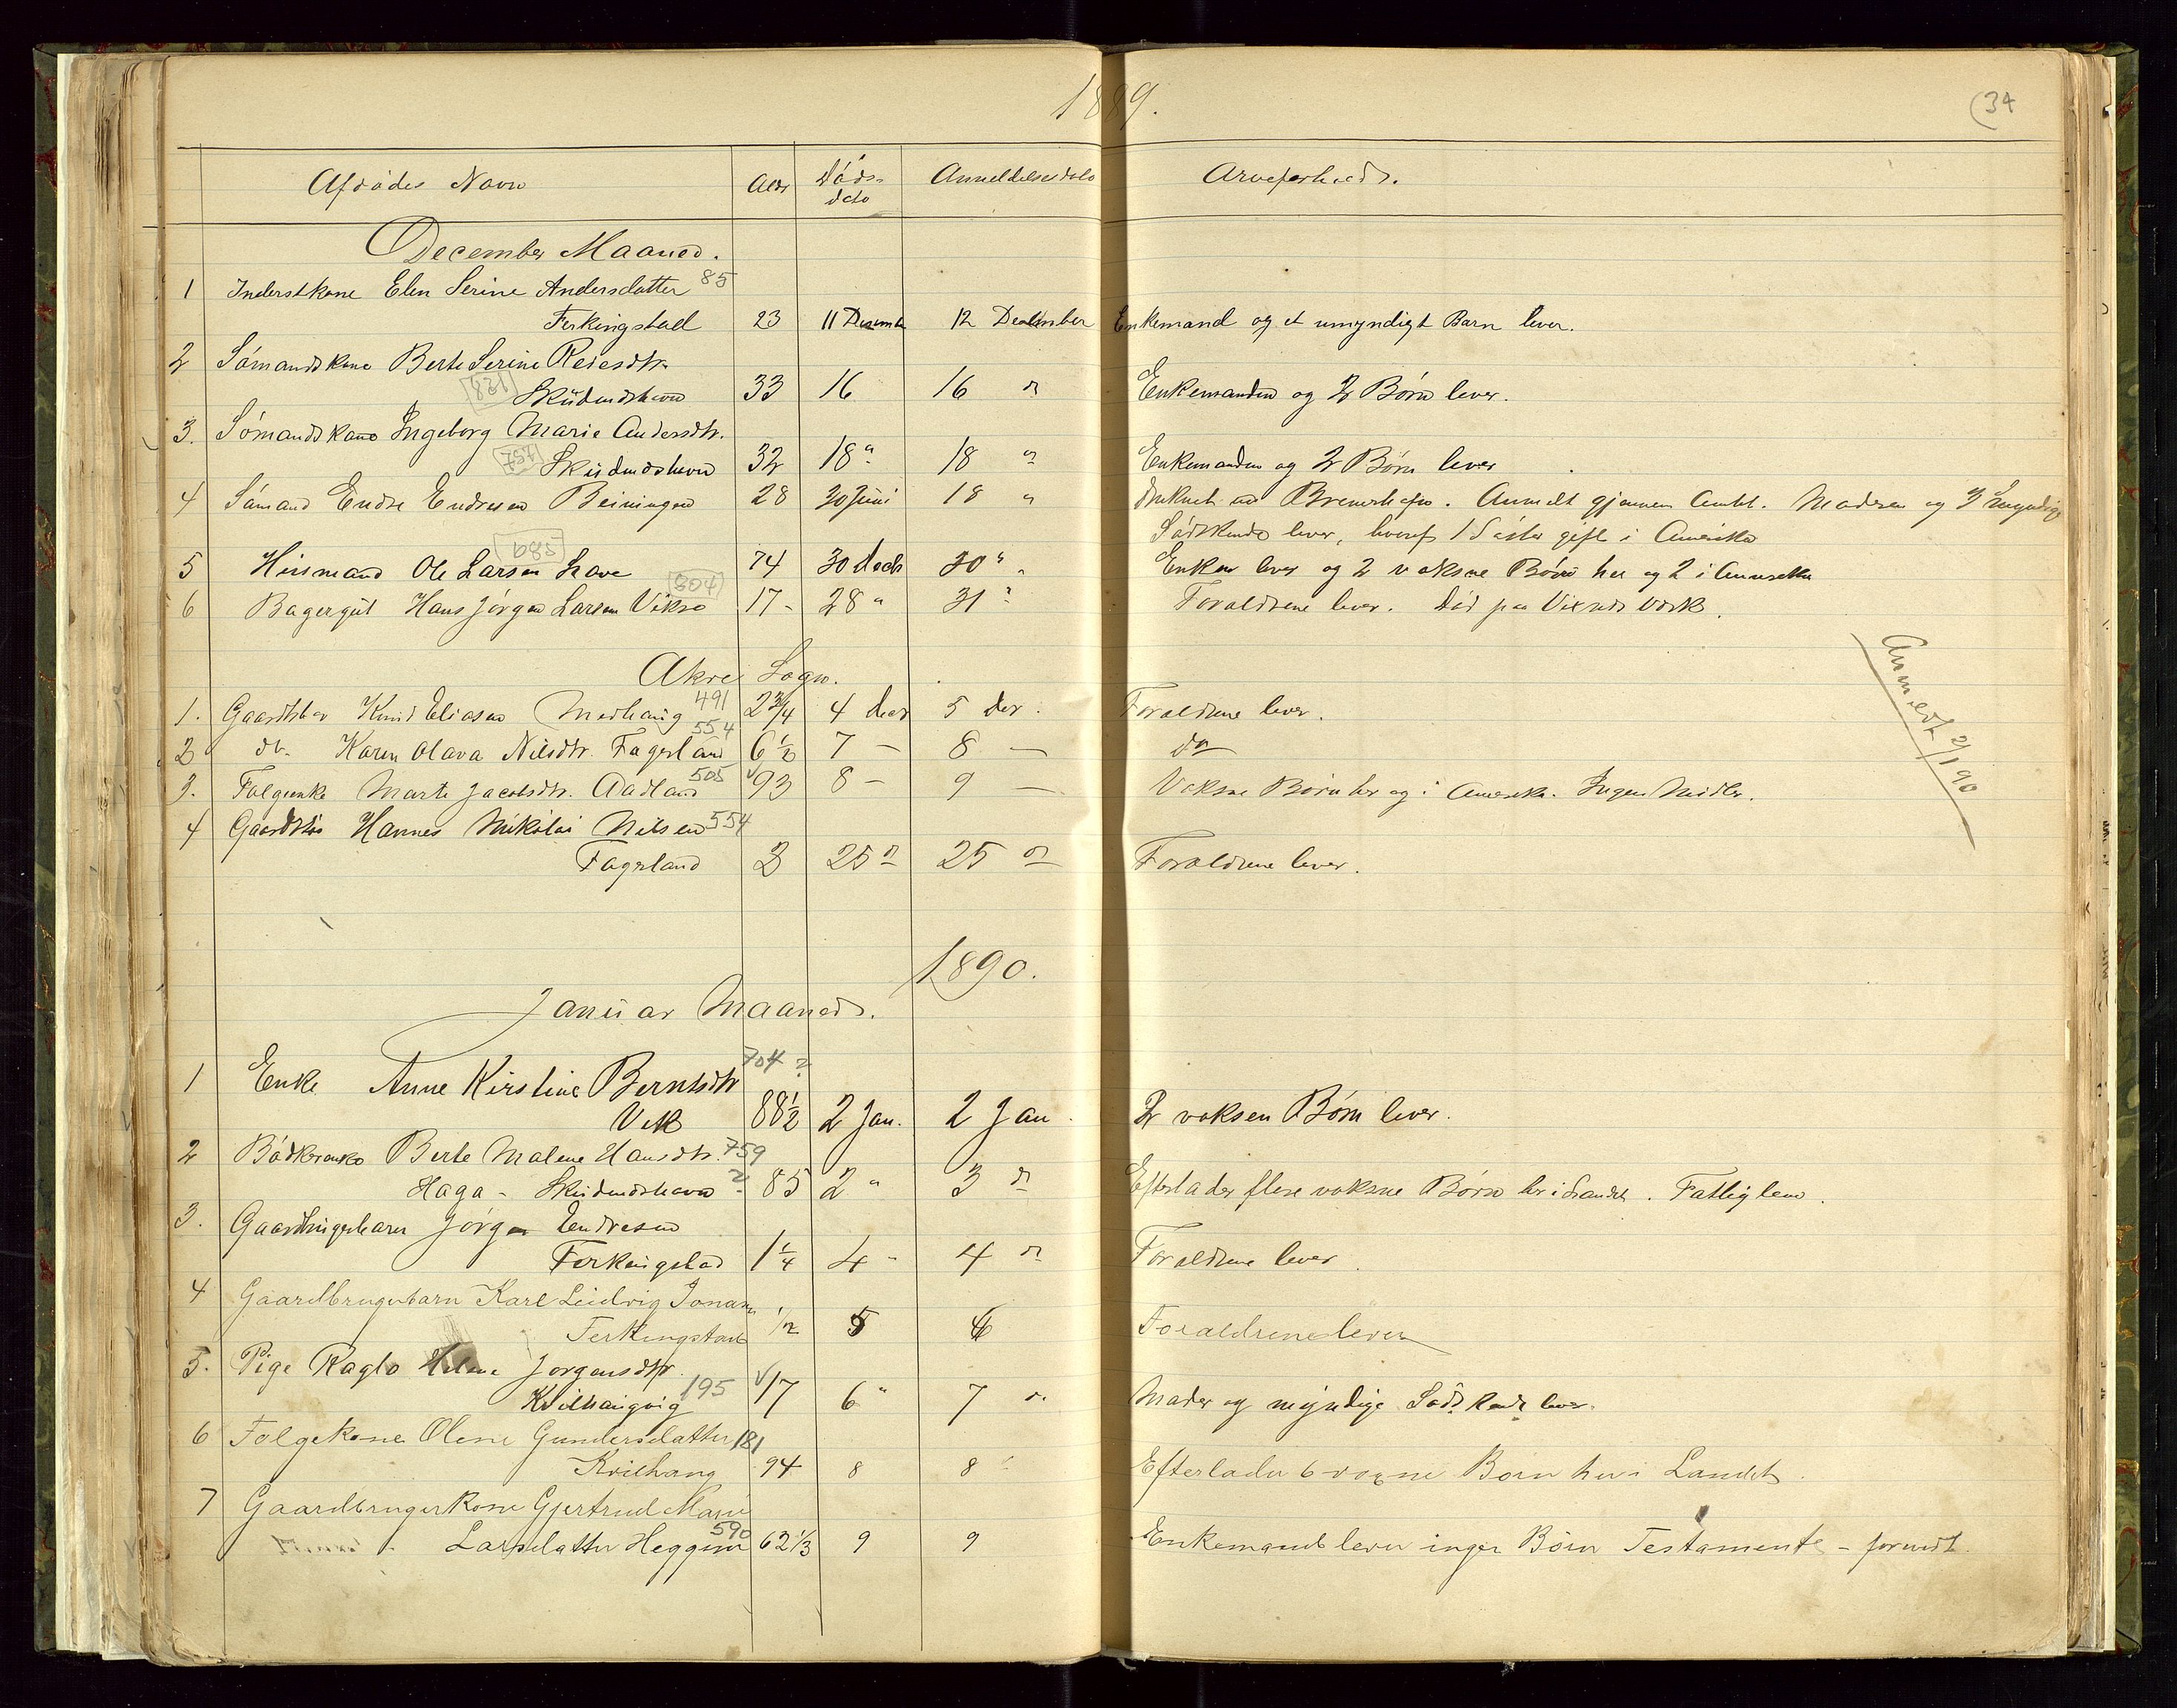 1889.
(34
Afdødes Navn Alder Døds-dato Anmeldelsesdato Arveforhold.
December Maaned.
1 Inderstkone Elen Serine Andersdatter 85
Ferkingstad 23 11 December 12 December Enkemand og et umyndigt Barn lever.
2 Sömandskone Berte Serine Reiesdtr.
831 Skudeneshavn 33 16 16 " Enkemanden og 2 Børn lever.
3. Sömandskone Ingeborg Marie Andersdtr.
757 Skudeneshavn 32 18 " 18 " Enkemanden og 2 Börn lever
4 Sömand Endre Endresen Beiningen 28 30 Juni 18 " druknet ved Bremerhafen. Anmeldt gjennem Amtet. Moderen og 3 umyndige
Södskende lever, hvoraf 1 Söster gift i Amerika
685
5 Husmand Ole Larsen Lave 74 30 Decb 30 " Enken lever og 2 voksne Børn her og 2 i Amerika
804
6 Bagergut Hans Jörgen Larsen Vikse 17 - 28 " 31 " Forældrene lever. Død paa Visnæs Værk.
Anmeldt 2/1 90
Akre Sogn.
1. Gaardbbr Knud Eliasen Medhaug 491 2 3/4 4 Decb 5 Dec. Forældrene lever.
2 do. Karen Olava Nilsdtr. Fagerland 554 6 1/2 7 - 8 - do
3. Folgeenke Marte Jacobsdtr. Aadland 505 93 8 - 9 - Voksne Börn her og i Amerika. Ingen Midler.
4 Hannes Mikolai Nilsen 554
Fagerland 3 25 " 25 " Forældrene lever.
1890.
Januar Maaned.
1 Enke Anne Kirstine Berntsdtr 704 ?
Vik 88 1/2 2 Jan. 2 Jan. 2 voksen Børn lever.
2 Bödkerenke Berte Malene Hansdtr. 759
Haga - Skudeneshavn ? 85 2 " 3 " Efterlader flere voksne Børn her i Landet. Fattiglem.
3. Gaardbrugerbarn Jörgen Endresen
Ferkingstad 1 1/4 4 " 4 " Forældrene lever.
4 Gaardbrugerbarn Karl Ludvig Jonasen
Ferkingstad 1/2 5 6 Forældrene lever
5. Pige Ragla Helene Jorgensdtr.
Kvilhaugvig 195 17 6 " 7 " Moder og myndige Södskende lever.
6 Folgekone Olene Gundersdatter 181
Kvilhaug 94 8 8 Efterlader 6 voxne Børn her i Landet.
7 Gaardbrugerkone Gjertrud Marie
Larsdatter Heggem 590 62 1/3 9 9 Enkemand lever ingen Börn Testamente -